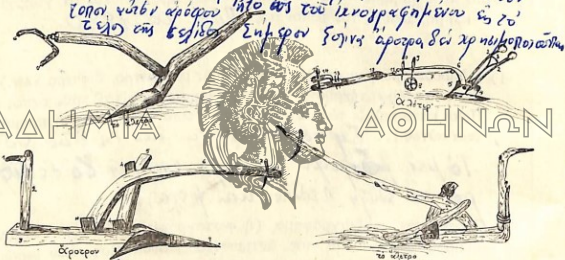 τοπον αὐτὸν ἀρότρου ἦτο ὡς τοῦ ἰχνογραφημένου εἰς τὸ
τέλος τῆς σελίδος. Σήμερον ξύλινα ἄροτρα δὲν χρησιμοποιοῦνται
το ἀλέτρι
ἀλέτρι
ΑΔΗΜΙΑ ΑΘΗΝΩΝ
ἄροτρον
το ἀλετρο